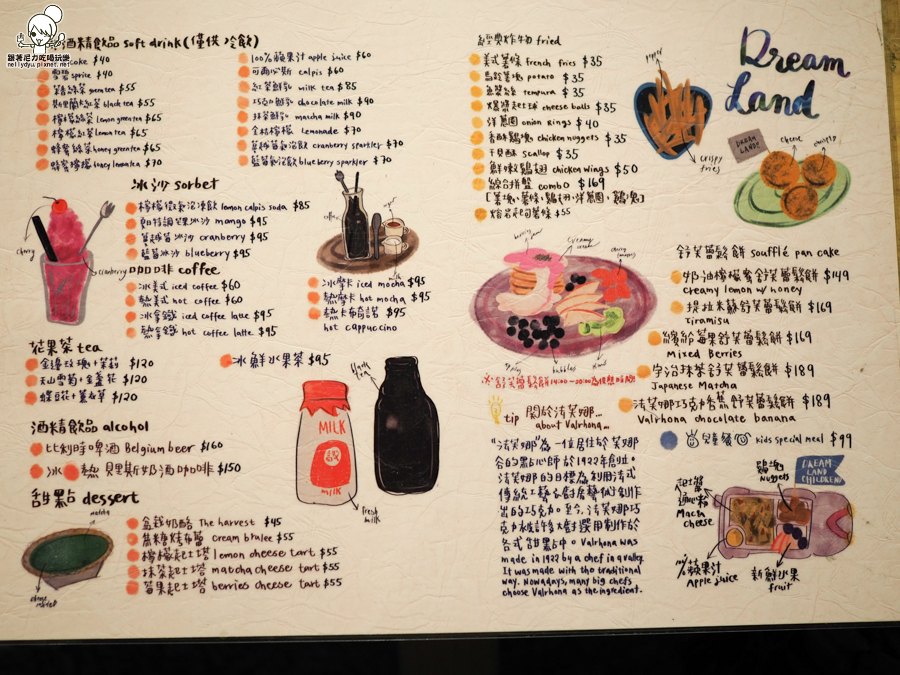 跟著尼力吃喝玩樂
nellydyu.pixnet.net
酒精飲品 soft drink (僅供冷飲)
coke $40
雪碧 sprite $40
綠茶 green tea $55
斯里蘭卡紅茶 black tea $55
檸檬綠茶 lemon green tea $65
檸檬紅茶 lemon tea $65
蜂蜜綠茶 honey green tea $65
蜂蜜檸檬 $70
100%蘋果汁 apple juice $60
可爾必斯 calpis $60
紅茶鮮乳 milk tea $85
巧克力鮮乳 chocolate milk $90
抹茶鮮乳 matcha milk $90
金桔檸檬 Lemonade $70
蔓越莓氣泡飲 cranberry sparkler $70
藍莓氣泡飲 blueberry sparkler $70
冰沙 sorbet
檸檬微氣泡凍飲 lemon calpis soda $85
芒果冰沙 mango $95
蔓越莓冰沙 cranberry $95
藍莓冰沙 blueberry $95
cherry
cranberry
咖啡 coffee
冰美式 iced coffee $60
熱美式 hot coffee $60
冰拿鐵 iced coffee latte $95
熱拿鐵 hot coffee latte $95
coffee
milk
冰摩卡 iced mocha $95
熱摩卡 hot mocha $95
熱卡布奇諾 $95
hot cappuccino
花果茶 tea
金邊玫瑰+茉莉 $120
天山雪菊+金盞花 $120
蝶豆花+薑衣草 $120
冰鮮水果茶 $95
black tea
MILK
MILK
fresh milk
酒精飲品 alcohol
比利時啤酒 Belgium beer $160
冰 熱 貝里斯奶酒咖啡 $150
甜點 dessert
matcha
盆栽奶酪 The harvest $45
焦糖烤布蕾 Cream brulee $55
檸檬起士塔 lemon cheese tart $55
抹茶起士塔 matcha cheese tart $55
莓果起士塔 berries cheese tart $55
經典炸物 fried
美式薯條 french fries $35
馬鈴薯塊 potato $35
魚薯條 tempura $35
爆漿起士球 cheese balls $35
洋蔥圈 onion rings $40
香酥雞塊 chicken nuggets $35
干貝酥 scallop $35
鮮嫩雞翅 chicken wings $50
綜合拼盤 combo $169
[薯塊、薯條、雞翅、洋蔥圈、雞塊]
焗烤起司薯條 $55
paper
crispy fries
Dream Land
DREAM LAND
cheese
crispy
creamy
cherry
bubbles
kiwi
※舒芙蕾鬆餅14:00~20:00為供應時間
舒芙蕾鬆餅 soufflé pan cake
奶油檸檬蜜舒芙蕾鬆餅 $149
creamy lemon w/ honey
提拉米蘇舒芙蕾鬆餅 $169
Tiramisu
繽紛莓果舒芙蕾鬆餅 $169
Mixed Berries
宇治抹茶舒芙蕾鬆餅 $189
Japanese Matcha
法芙娜巧克力香蕉舒芙蕾鬆餅 $189
Valrhona chocolate banana
兒童餐 kids special meal $99
tip 關於法芙娜...
about Valrhona...
"法芙娜"為一位居住於芙娜
谷的點心師於1922年創立。
法芙娜的目標為利用法式
傳統工藝在廚房藝術創作
出的巧克力。至今,法芙娜巧
克力被許多大廚選用制作於
各式甜點中。Valrhona was
made in 1922 by a chef in a valley.
It was made with the traditional
way. Nowadays, many big chefs
choose Valrhona as the ingredient.
雞塊
Nuggets
DREAM LAND CHILDREN
起士醬通心粉
Mac n cheese
100%蘋果汁
Apple juice
新鮮水果
fruit